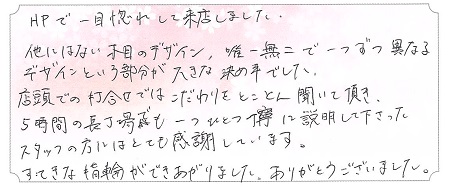 HPで一目惚れして来店しました.
他にはない木目のデザイン,唯一無二で一つずつ異なる
デザインという部分が大きな決め手でした.
店頭での打合せではこだわりをとことん聞いて頂き.
5時間の長丁場でも一つひとつ丁寧に説明して下さった
スタッフの方にはとても感謝しています.
すてきな指輪ができあがりました.ありがとうございました.